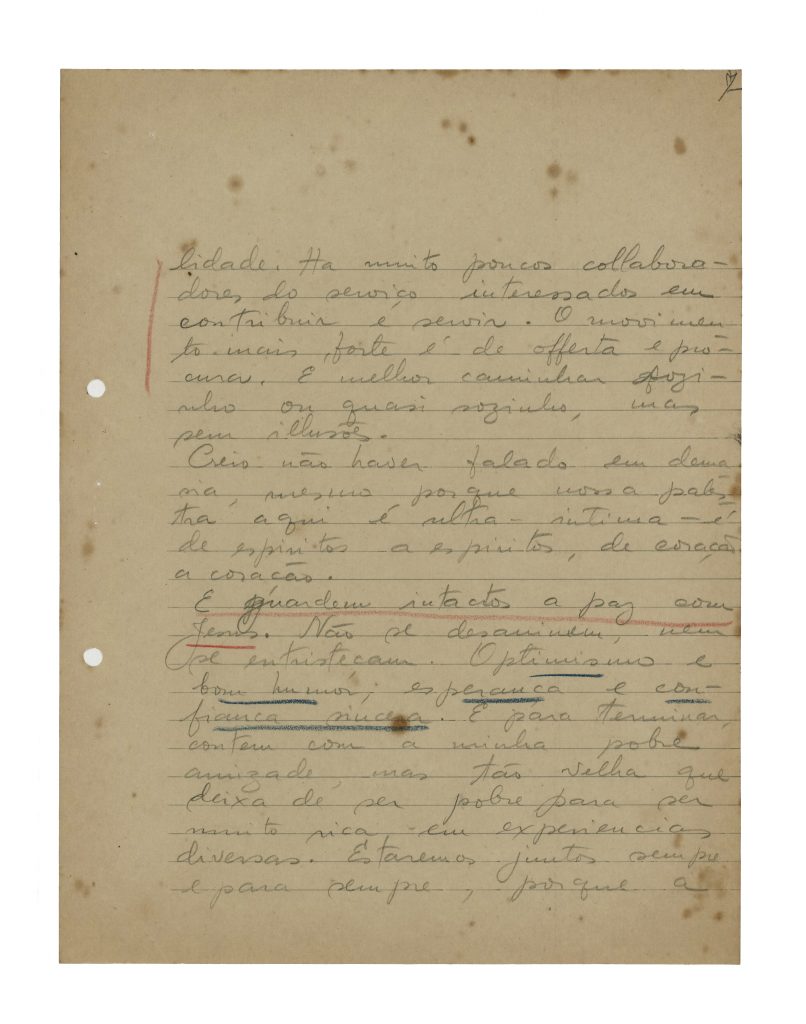 7
lidade. Ha muito poucos collabora-
dores do serviço interessados em
contribuir e servir. O movimen
to mais forte é de offerta e pro-
cura. E melhor caminhar sozi-
nho ou quasi sozinho, mas
sem illusões.
Creio não haver falado em dema
sia, mesmo porque nossa pales
tra aqui é ultra-intima - é
de espiritos a espiritos, de coração
a coração.
E guardem intactos a paz com
Jesus. Não se desanimem, nem
se entristeçam. Optimismo e
bom humor; esperança e con-
fiança sincera. E para terminar,
contem com a minha pobre
amizade, mas tão velha que
deixa de ser pobre para ser
muito rica, em experiencias
diversas. Estaremos juntos sempre
e para sempre, porque a